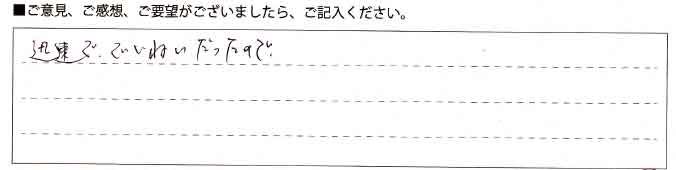 ■ご意見、ご感想、ご要望がございましたら、ご記入ください。
迅速で、ていねいだったので。